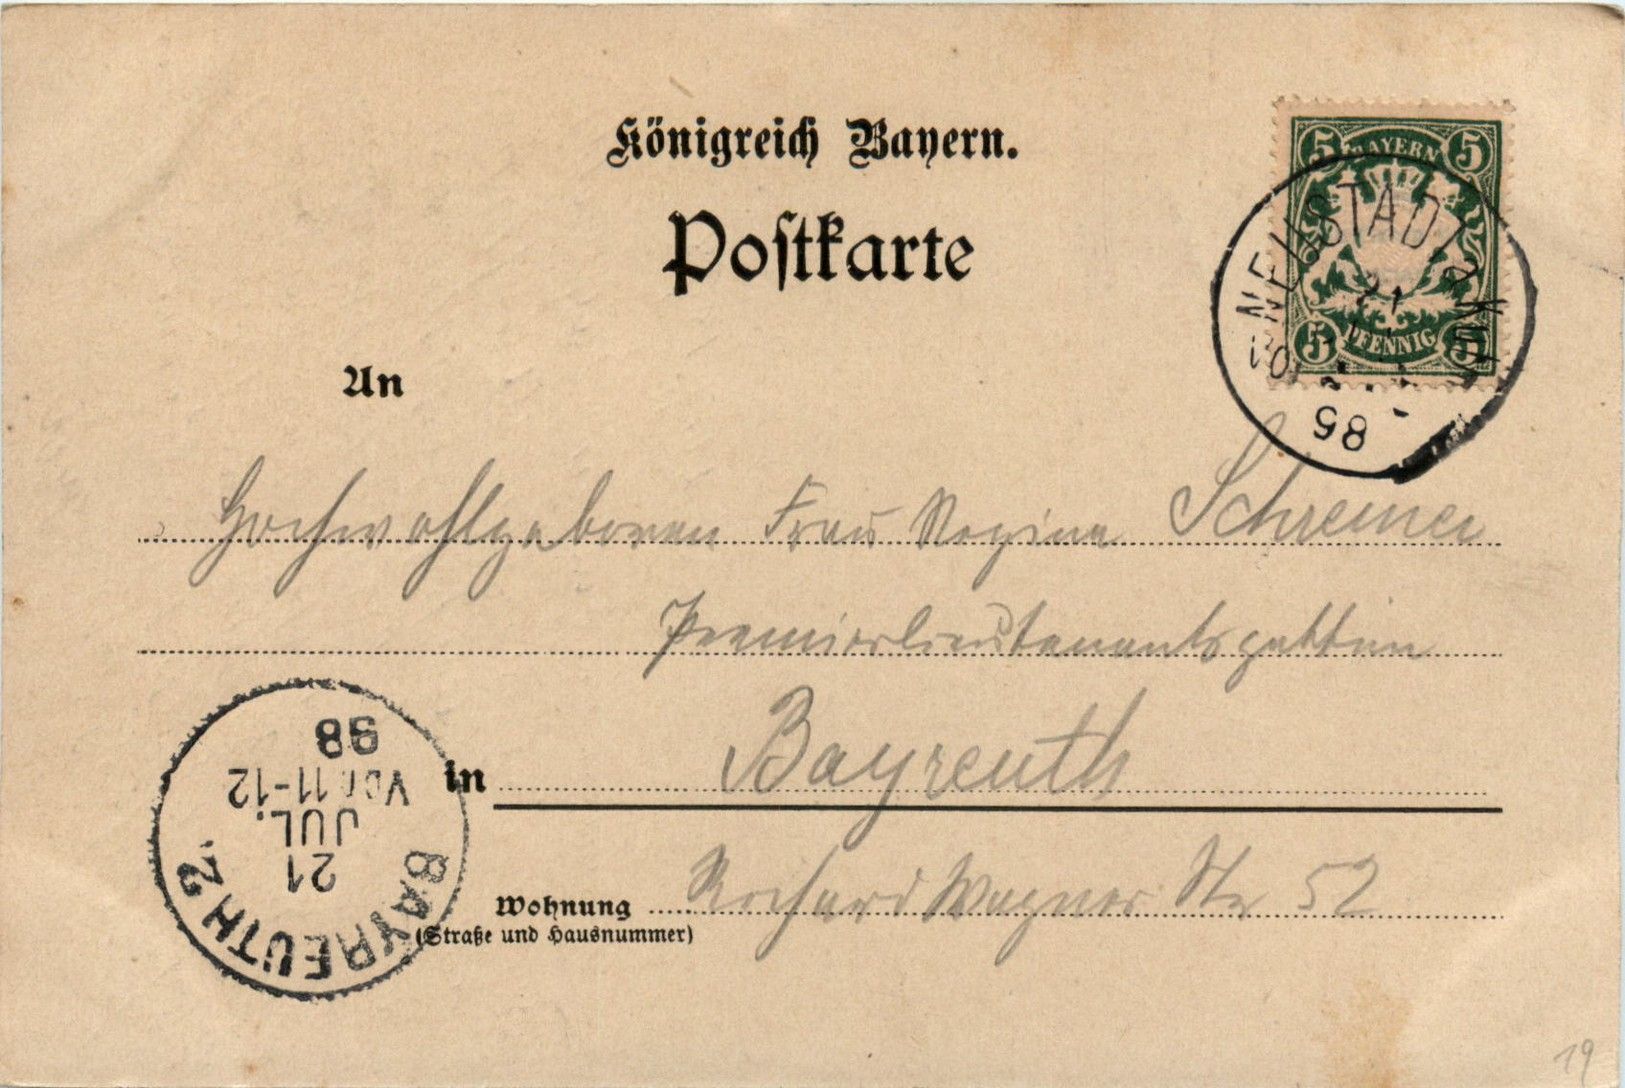 Königreich Bayern.
Postkarte
5 BAYERN 5
5 PFENNIG 5
NEUSTADT a. KULM
21
An
Hochwohlgeboren Frau Regina Schreiner
Premierlieutenantsgattin
in Bayreuth
Wohnung Richard Wagner Str 52
(Straße und Hausnummer)
BAYREUTH 2.
21
JUL.
Vor. 11-12
98
19